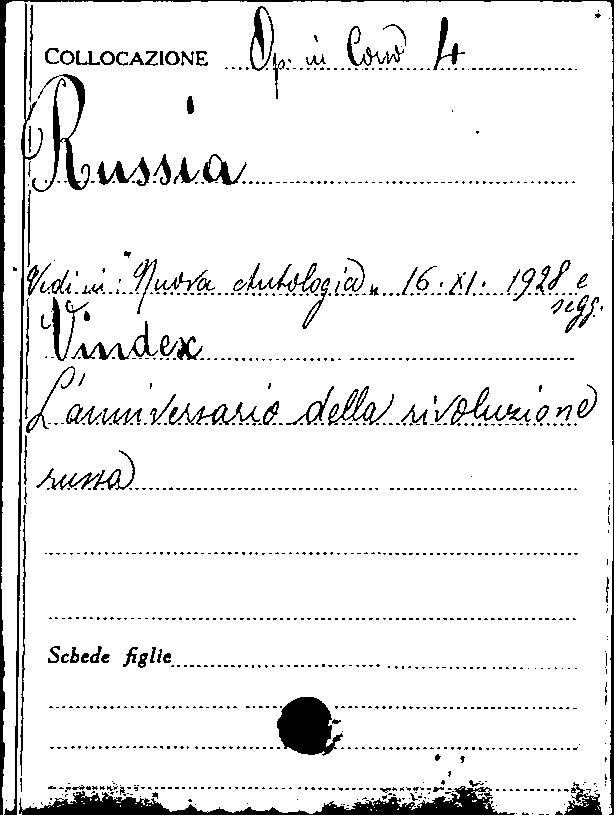 COLLOCAZIONE Op. in Corso 4
Russia
Vedi in: "Nuova Antologia" 16. XI. 1928 e
segg.
Vindex
L'anniversario della rivoluzione
russa
Schede figlie